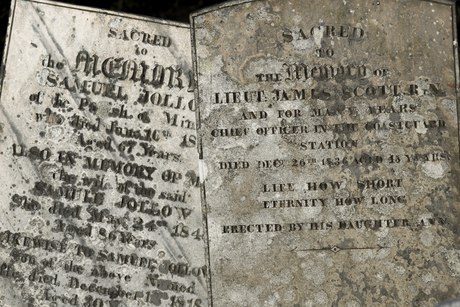 SACRED
to
the MEMORY
SAMUEL JOLLO
of the Parish of Min
who died June 10th 18
Aged 67 Years.
ALSO IN MEMORY OF M
the wife of the said
SAMUEL JOLLOW
She died May 24th 184
Aged 86 Years
LIKEWISE TO SAMUEL JOLLOW
son of the above Named
died December 18
Aged
SACRED
TO
THE Memory OF
LIEUT. JAMES SCOTT, R.N.
AND FOR MANY YEARS
CHIEF OFFICER IN THE COASTGUARD
STATION
DIED DEC. 26TH 1836 AGED YEARS
LIFE HOW SHORT
ETERNITY HOW LONG
ERECTED BY HIS DAUGHTER ANN